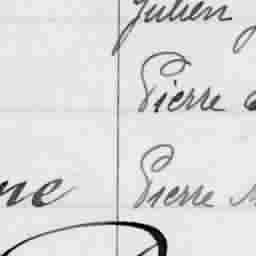 Julien
Pierre
ne Pierre